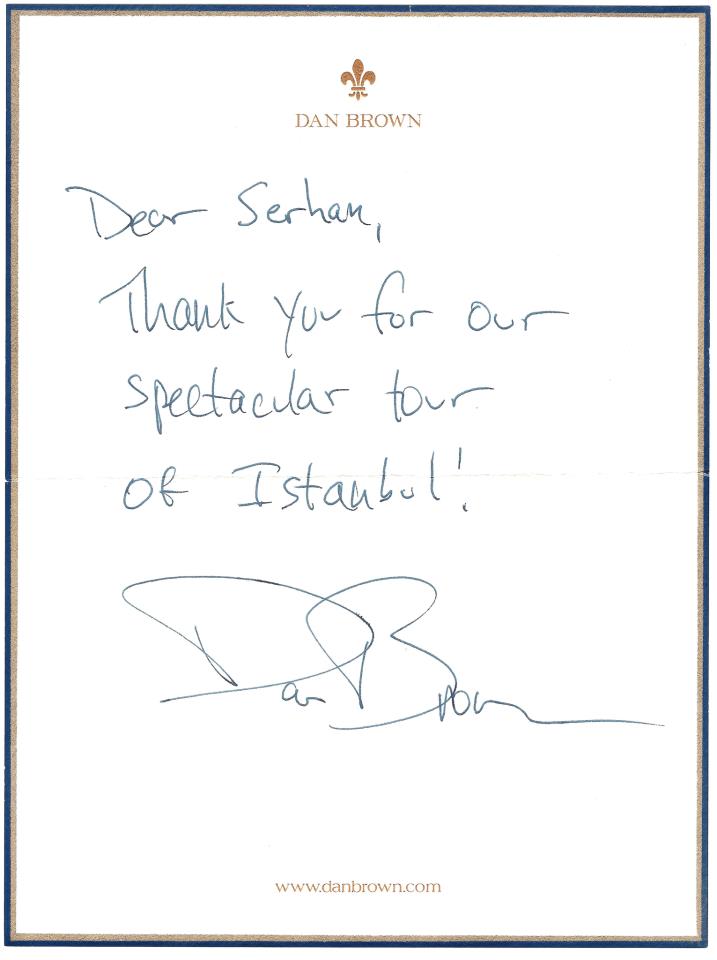 DAN BROWN
Dear Serhan,
Thank you for our
spectacular tour
of Istanbul!
Dan Brown
www.danbrown.com